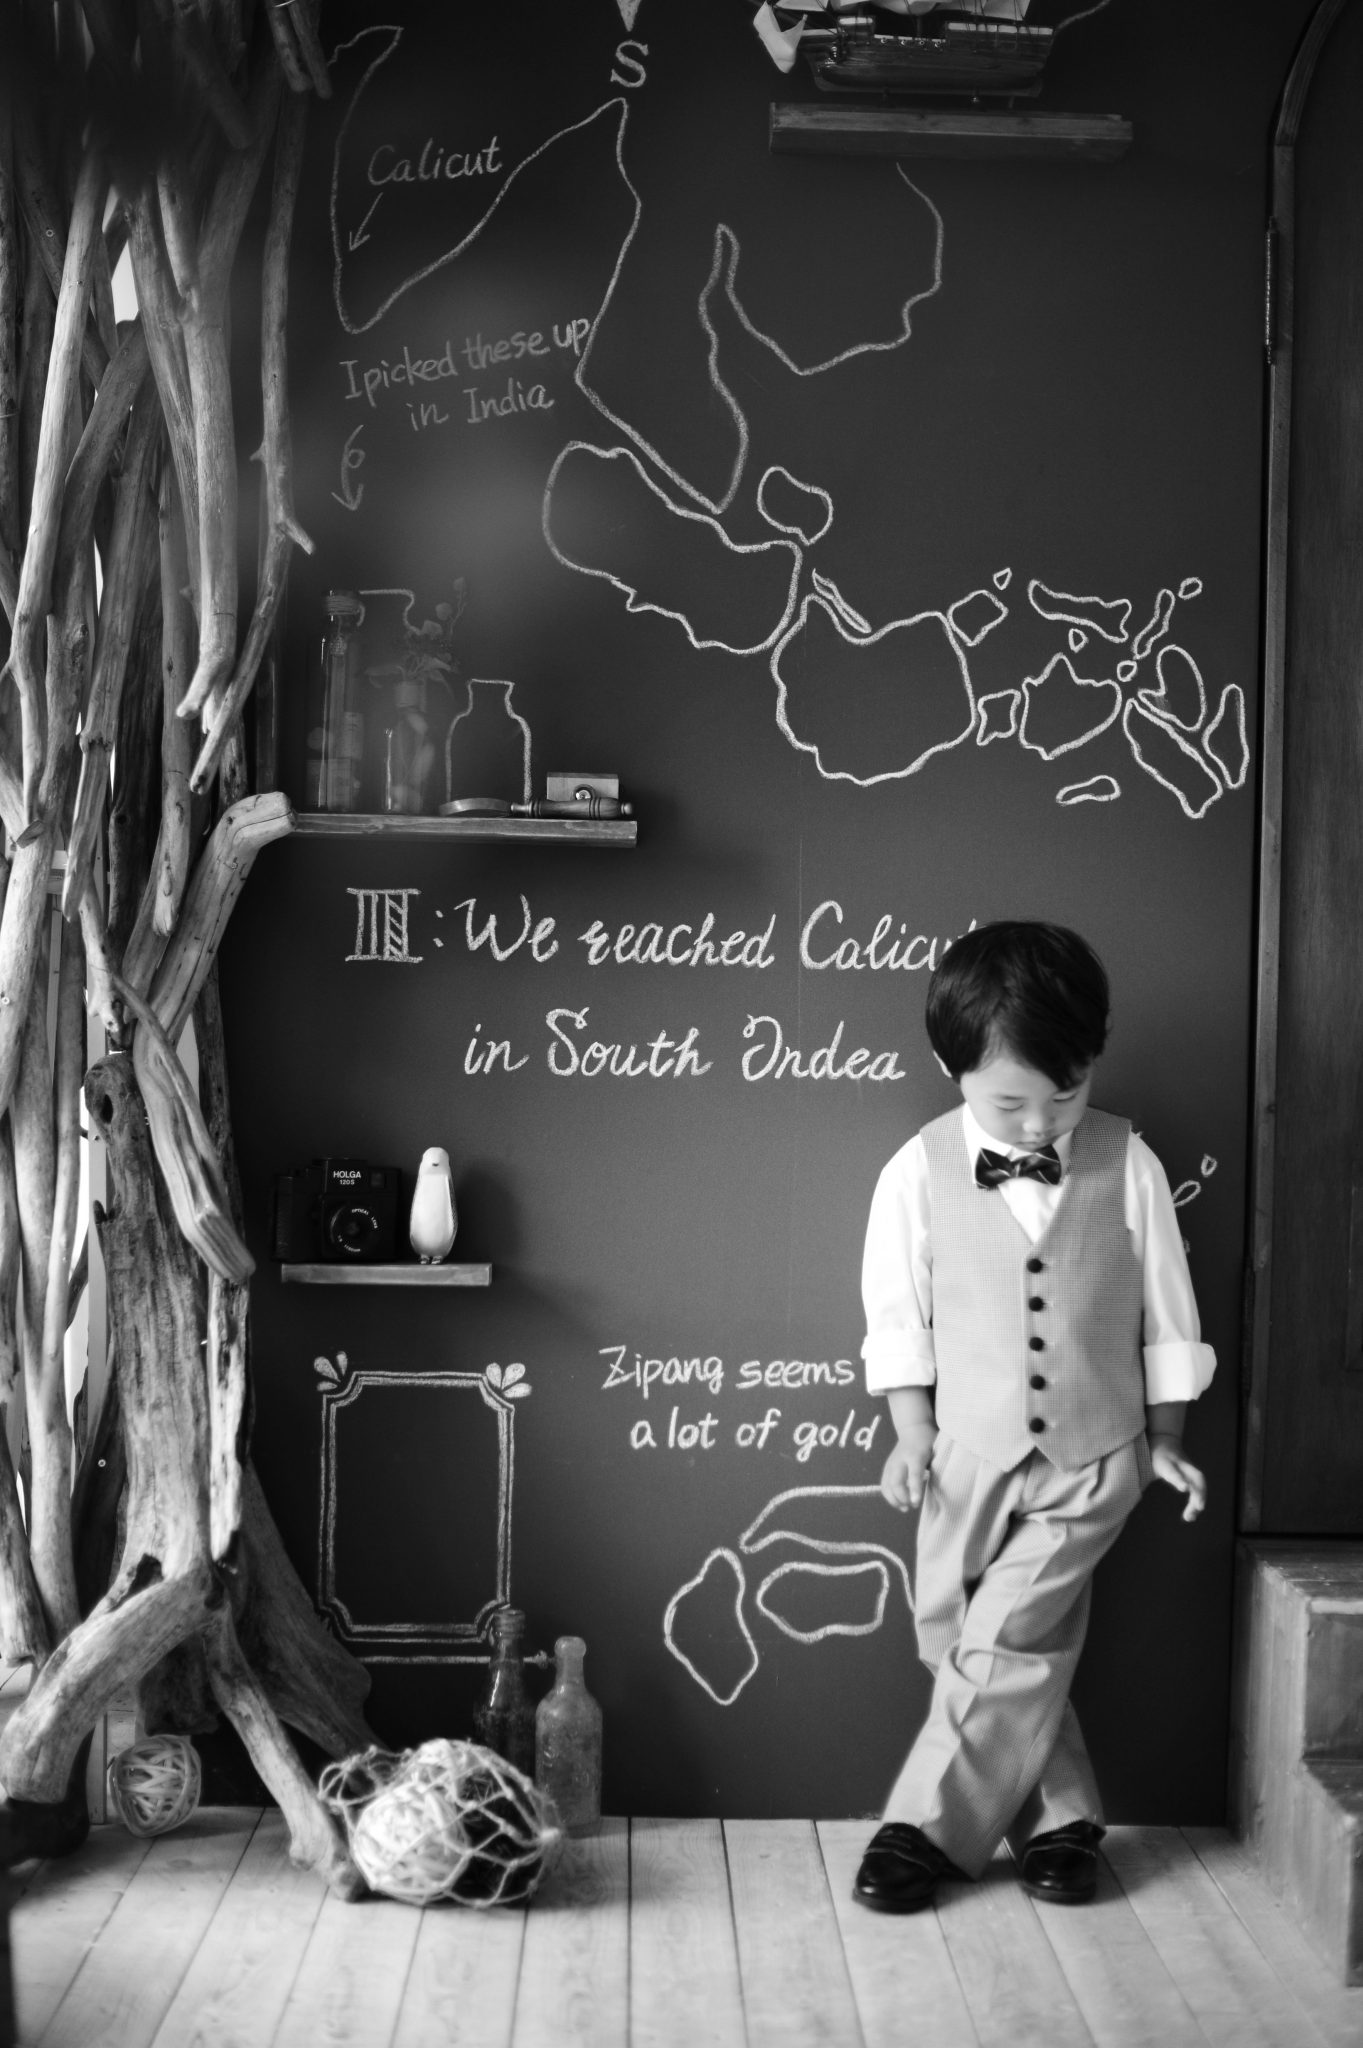 S
Calicut
I picked these up
in India
III: We reached Calicut
in South Indea
HOLGA
120S
Zipang seems
a lot of gold